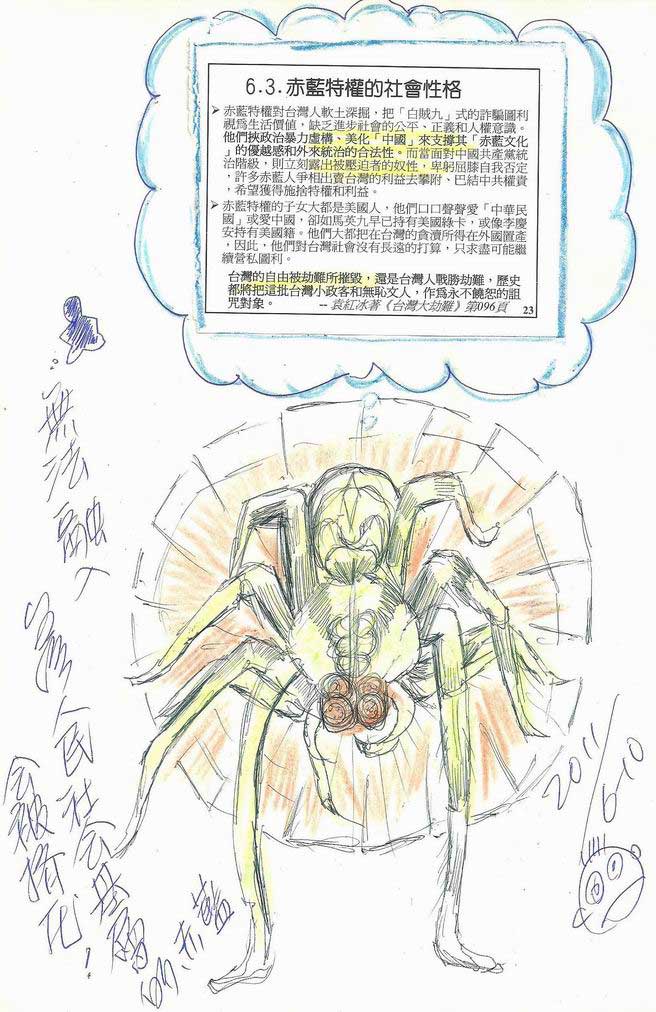 6.3.赤藍特權的社會性格
➢赤藍特權對台灣人軟土深掘，把「白賊九」式的詐騙圖利
視為生活價值，缺乏進步社會的公平、正義和人權意識。
他們挾政治暴力虛構、美化「中國」來支撐其「赤藍文化
」的優越感和外來統治的合法性。而當面對中國共產黨統
治階級，則立刻露出被壓迫者的奴性，卑躬屈膝自我否定
，許多赤藍人爭相出賣台灣的利益去攀附、巴結中共權貴
，希望獲得施捨特權和利益。
➢赤藍特權的子女大都是美國人，他們口口聲聲愛「中華民
國」或愛中國，卻如馬英九早已持有美國綠卡，或像李慶
安持有美國籍。他們大都把在台灣的貪瀆所得在外國置產
，因此，他們對台灣社會沒有長遠的打算，只求盡可能繼
續營私圖利。
台灣的自由被劫難所摧毀，還是台灣人戰勝劫難，歷史
都將把這批台灣小政客和無恥文人，作為永不饒恕的詛
咒對象。 -- 袁紅冰著《台灣大劫難》第096頁
23
無法融入
台灣人民社會基層
的赤藍
會被
化！
2011/6-10